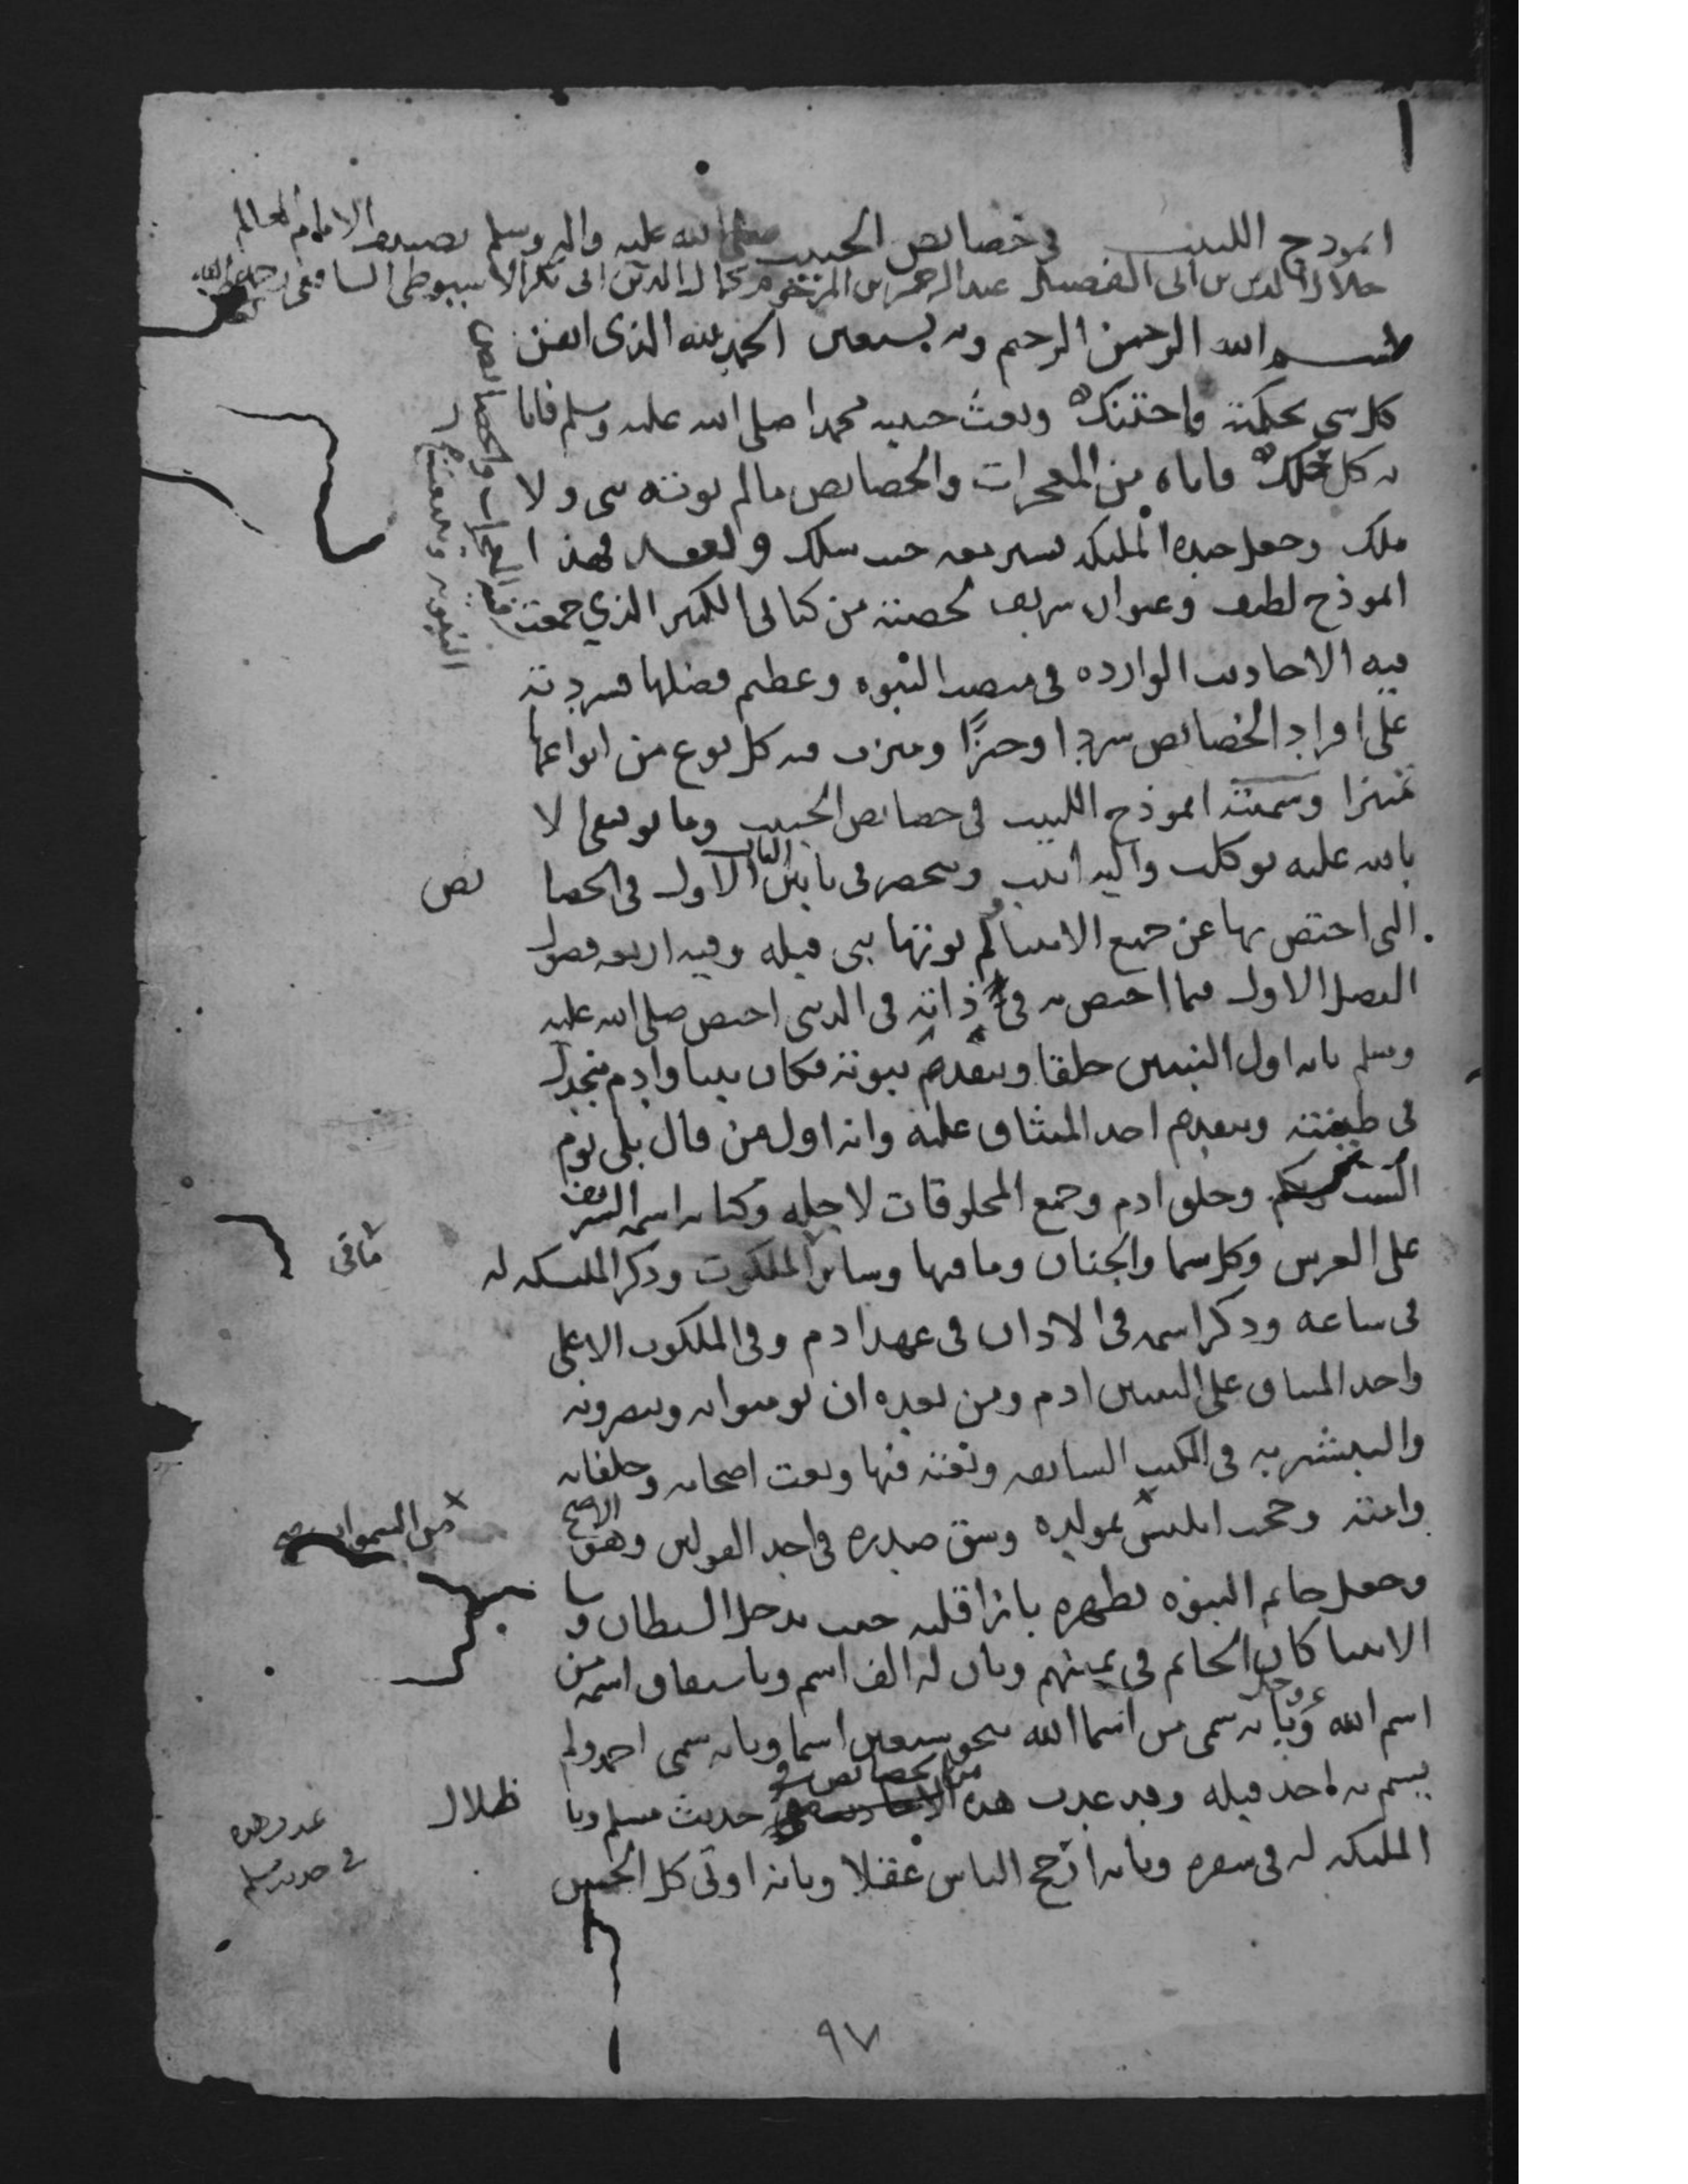 انموذج اللبيب في خصائص الحبيب صلى الله عليه واله وسلم تصنيف الامام العالم
جلال الدين بن ابى الفضل عبد الرحمن بن المرحوم كمال الدين ابى بكر الاسيوطى الشافعى رحمه الله
بسم الله الرحمن الرحيم وبه نستعين الحمد لله الذى اتقن
كل شى بحكمته واحتنك وبعث حبيبه محمدا صلى الله عليه وسلم فانا
به كل حلك واتاه من المعجزات والخصايص مالم يوته نبى ولا
ملك وجعل جنده المليكه تسير معه حيث سلك وبعد فهذا
انموذج لطيف وعنوان شريف لخصته من كتابى الكبير الذي جمعت
فيه المعجزات والخصايص
النبويه وتتبعت
فيه الاحاديث الوارده في منصب النبوه وعظيم فضلها فسردته
على افراد الخصايص سردا وجيزًا وميزت فيه كل نوع من انواعها
تمييزا وسميته انموذج اللبيب في خصايص الحبيب وما توفيقى الا
بالله عليه توكلت واليه انيب وينحصر فى بابين الباب الاول في الخصا يص
التى اختص بها عن جميع الانبيا ولم يوتها نبى قبله وفيه اربعه فصول
الفصل الاول فيما اختص به في ذاته فى الدنيى اختص صلى الله عليه
وسلم بانه اول النبيين خلقا وبتقدم نبوته فكان نبيا وادم منجدل
فى طينته وبتقدم اخذ الميثاق عليه وانه اول من قال بلى يوم
الست بربكم وخلق ادم وجميع المخلوقات لاجله وكتابه اسمه الشريف
على العرش وكل سما والجنان وما فيها وساير ما فى الملكوت وذكر المليكه له
فى ساعه وذكر اسمه فى الاذان فى عهد ادم وفي الملكوت الاعلى
واخذ الميثاق على النبيين ادم ومن بعده ان يومنوا به وينصرونه
والتبشير به في الكتب السابقه ونعته فيها ونعت اصحابه وخلفايه
وامته وحجب ابليس من السموات صح بمولده وشق صدره في احد القولين وهو الاصح
وجعل خاتم النبوه بظهره بازا قلبه حيث يدخل الشيطان وسا ير
الانبيا كان الخاتم في يمينهم وبان له الف اسم وباشتقاق اسمه من
اسم الله عز وجل وبانه سمى من اسما الله بنحو سبعين اسما وبانه سمى احمد ولم
يسم به احد قبله وقد عدت هذه من الخصايص في حديث مسلم وبا ظلال
عد وهذه
في حديث مسلم
المليكه له فى سفره وبانه ارجح الناس عقلا وبانه اوتى كل الحسن
٩٧